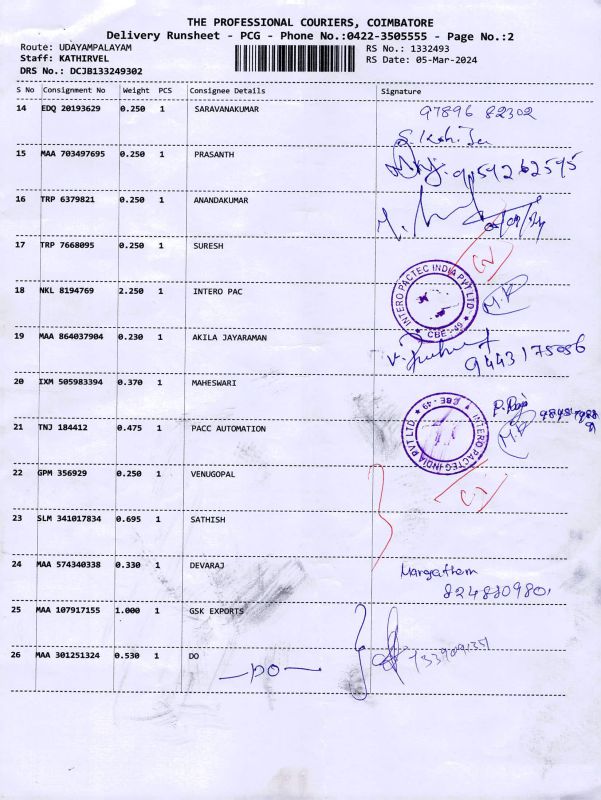 THE PROFESSIONAL COURIERS, COIMBATORE
Delivery Runsheet - PCG - Phone No.:0422-3505555 - Page No.:2
Route: UDAYAMPALAYAM RS No.: 1332493
Staff: KATHIRVEL RS Date: 05-Mar-2024
DRS No.: DCJB133249302
S No Consignment No Weight PCS Consignee Details Signature
14 EDQ 20193629 0.250 1 SARAVANAKUMAR 97896 82302
15 MAA 703497695 0.250 1 PRASANTH
16 TRP 6379821 0.250 1 ANANDAKUMAR
17 TRP 7668095 0.250 1 SURESH
INTERO PACTEC INDIA PVT LTD
CBE - 49
M.R
18 NKL 8194769 2.250 1 INTERO PAC
19 MAA 864037904 0.230 1 AKILA JAYARAMAN 9443175056
20 IXM 505983394 0.370 1 MAHESWARI
INTERO PACTEC INDIA PVT LTD
CBE - 49
M.R
21 TNJ 184412 0.475 1 PACC AUTOMATION
22 GPM 356929 0.250 1 VENUGOPAL
23 SLM 341017834 0.695 1 SATHISH
24 MAA 574340338 0.330 1 DEVARAJ
25 MAA 107917155 1.000 1 GSK EXPORTS
26 MAA 301251324 0.530 1 DO
DO